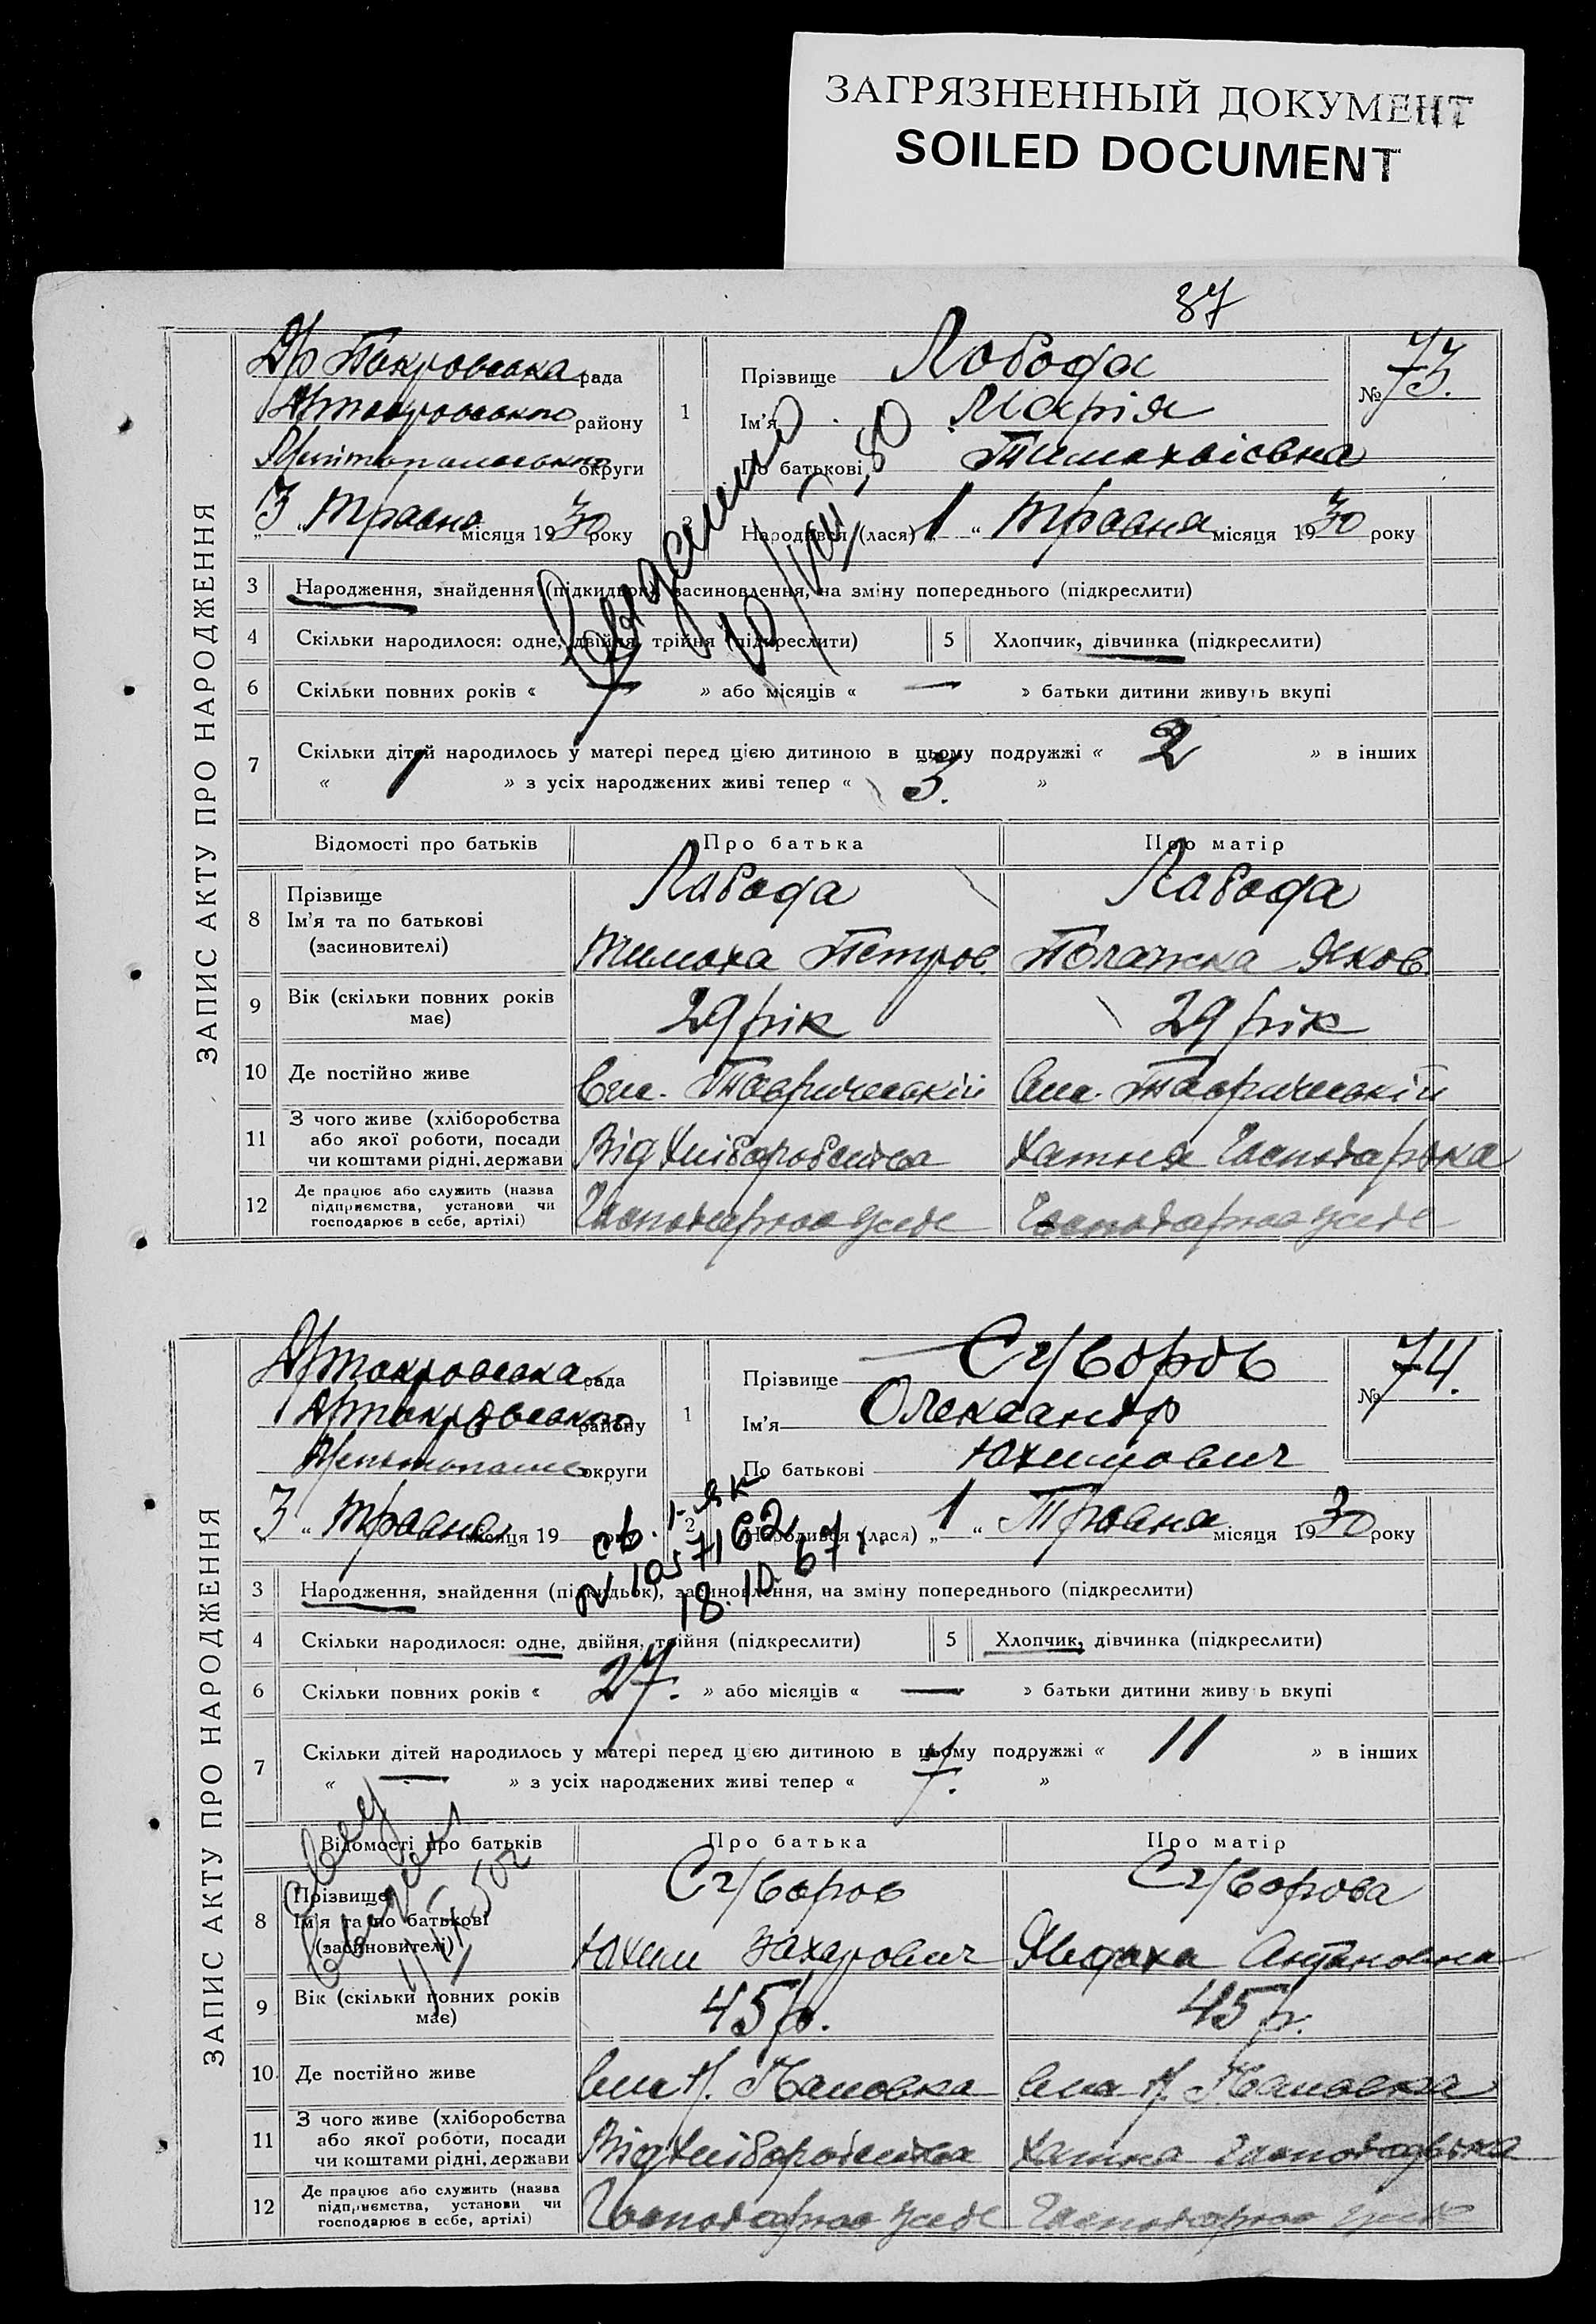 ЗАГРЯЗНЕННЫЙ ДОКУМЕНТ
SOILED DOCUMENT
87
ЗАПИС АКТУ ПРО НАРОДЖЕННЯ
Др Покровська рада
району
округи
„3“ Травня місяця 1930 року
1
Прізвище Лобода
Ім'я Марія
По батькові Тимохвієвна
№ 73.
2 Народився (лася) „1“ Травня місяця 1930 року
3 Народження, знайдення (підкидьок), засиновлення, на зміну попереднього (підкреслити)
4 Скільки народилося: одне, двійня, трійня (підкреслити)
5 Хлопчик, дівчинка (підкреслити)
6 Скільки повних років « 7 » або місяців « — » батьки дитини живуть вкупі
7 Скільки дітей народилось у матері перед цією дитиною в цьому подружжі « 2 » в інших
« 1 » з усіх народжених живі тепер « 3. »
Відомості про батьків
Про батька
Про матір
8 Прізвище
Ім'я та по батькові
(засиновителі)
Лабода
Тимоха Петров.
Лабода
Полажка Яков.
9 Вік (скільки повних років
має)
29 рік
29 рік
10 Де постійно живе
Сел. Тавричеській
Сел. Тавричеській
11 З чого живе (хліборобства
або якої роботи, посади
чи коштами рідні, держави
Від Хліборобства
Хатня Господарька
12 Де працює або служить (назва
підприємства, установи чи
господарює в себе, артілі)
Господарює у себе
Господарює у себе
ЗАПИС АКТУ ПРО НАРОДЖЕННЯ
рада
району
округи
„3“ Травня місяця 19
1
Прізвище Сѵворов
Ім'я Олександр
По батькові Юхимович
№ 74.
св. 1-ЯК
N 1057162
18.10.67
2 Народився (лася) „1“ Травня місяця 1930 року
3 Народження, знайдення (підкидьок), засиновлення, на зміну попереднього (підкреслити)
4 Скільки народилося: одне, двійня, трійня (підкреслити)
5 Хлопчик, дівчинка (підкреслити)
6 Скільки повних років « 27. » або місяців « — » батьки дитини живуть вкупі
7 Скільки дітей народилось у матері перед цією дитиною в цьому подружжі « 11 » в інших
« — » з усіх народжених живі тепер « 7. »
Відомості про батьків
Про батька
Про матір
8 Прізвище
Ім'я та по батькові
(засиновителі)
Сѵворов
Юхим Захарович
Сѵворова
Антановна
9 Вік (скільки повних років
має)
45 р.
45 р.
10 Де постійно живе
11 З чого живе (хліборобства
або якої роботи, посади
чи коштами рідні, держави
Від Хліборобства
Хатня Господарька
12 Де працює або служить (назва
підприємства, установи чи
господарює в себе, артілі)
Господарює у себе
Господарює у себе